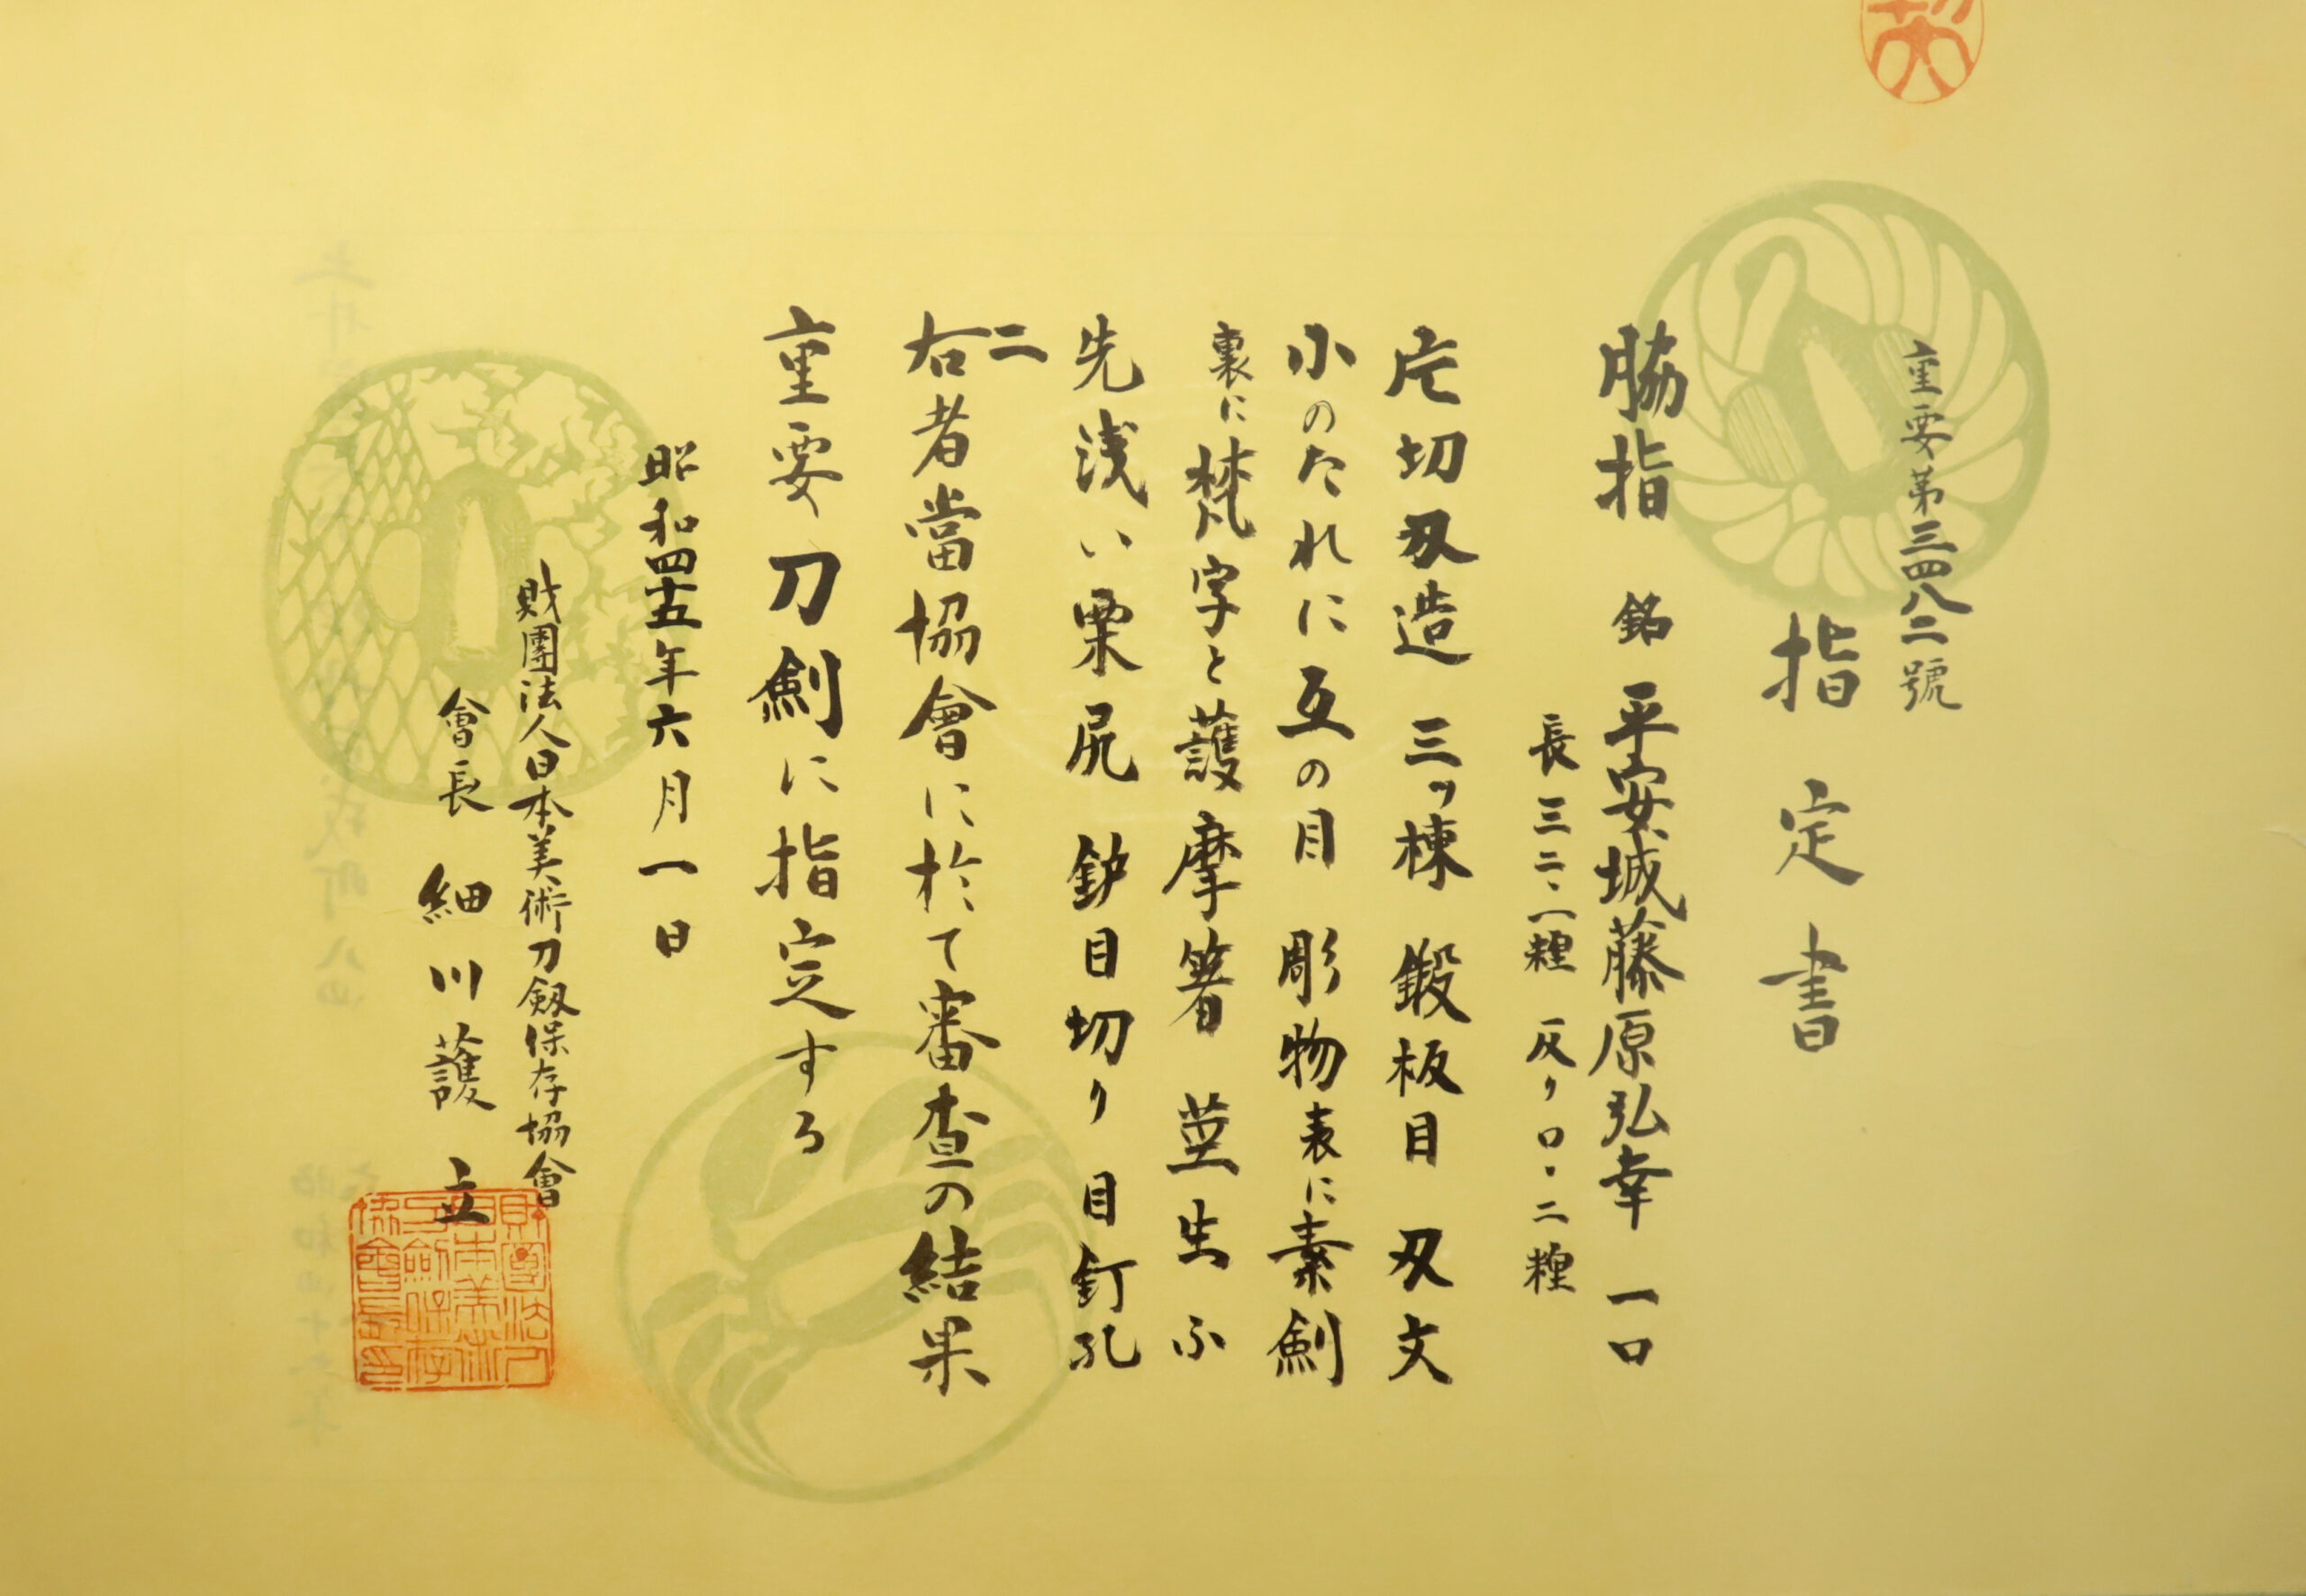 重要第三四八二號
指定書
脇指 銘 平安城藤原弘幸 一口
長 三二・一糎 反り 〇・二糎
片切刃造 三ッ棟 鍛板目 刃文
小のたれに互の目 彫物表に素剣
裏に梵字と護摩箸 茎生ふ
先浅い栗尻 鈩目切り 目釘孔
二
右者當協會に於て審査の結果
重要刀劍に指定する
昭和四十五年六月一日
財團法人日本美術刀剱保存協會
會長 細川護立
財團法人日本美術刀劍保存協會長印